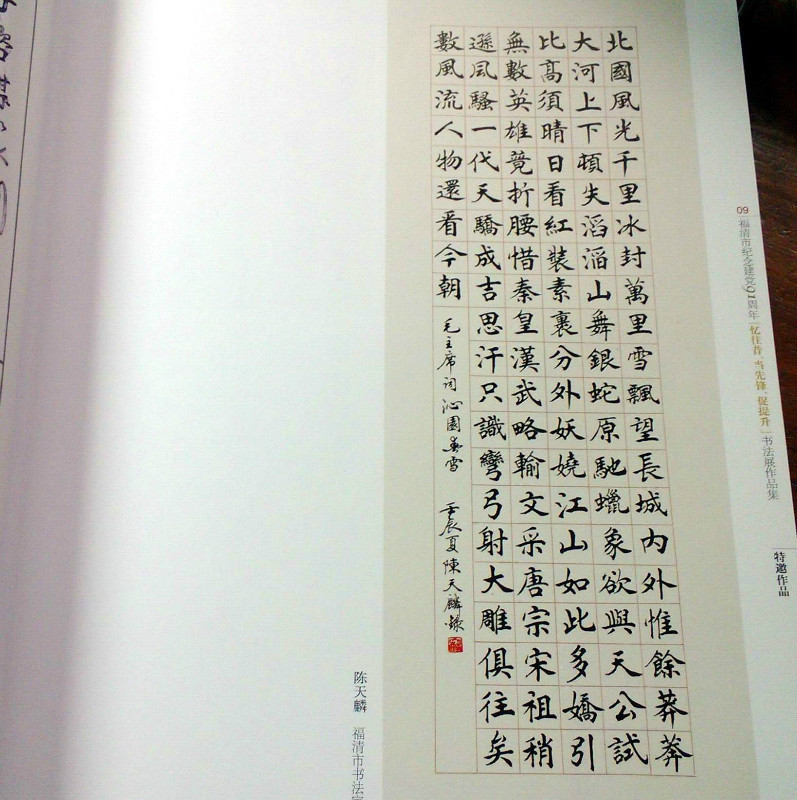 09 福清市纪念建党91周年「忆往昔、当先锋、促提升」书法展作品集
特邀作品
北國風光千里冰封萬里雪飄望長城内外惟餘莽莽
大河上下頓失滔滔山舞銀蛇原馳蠟象欲與天公試
比高須晴日看紅裝素裹分外妖嬈江山如此多嬌引
無數英雄竟折腰惜秦皇漢武略輸文采唐宗宋祖稍
遜風騷一代天驕成吉思汗只識彎弓射大雕俱往矣
數風流人物還看今朝
毛主席词沁園春雪 壬辰夏陳天麟錄
陈天麟 福清市书法家